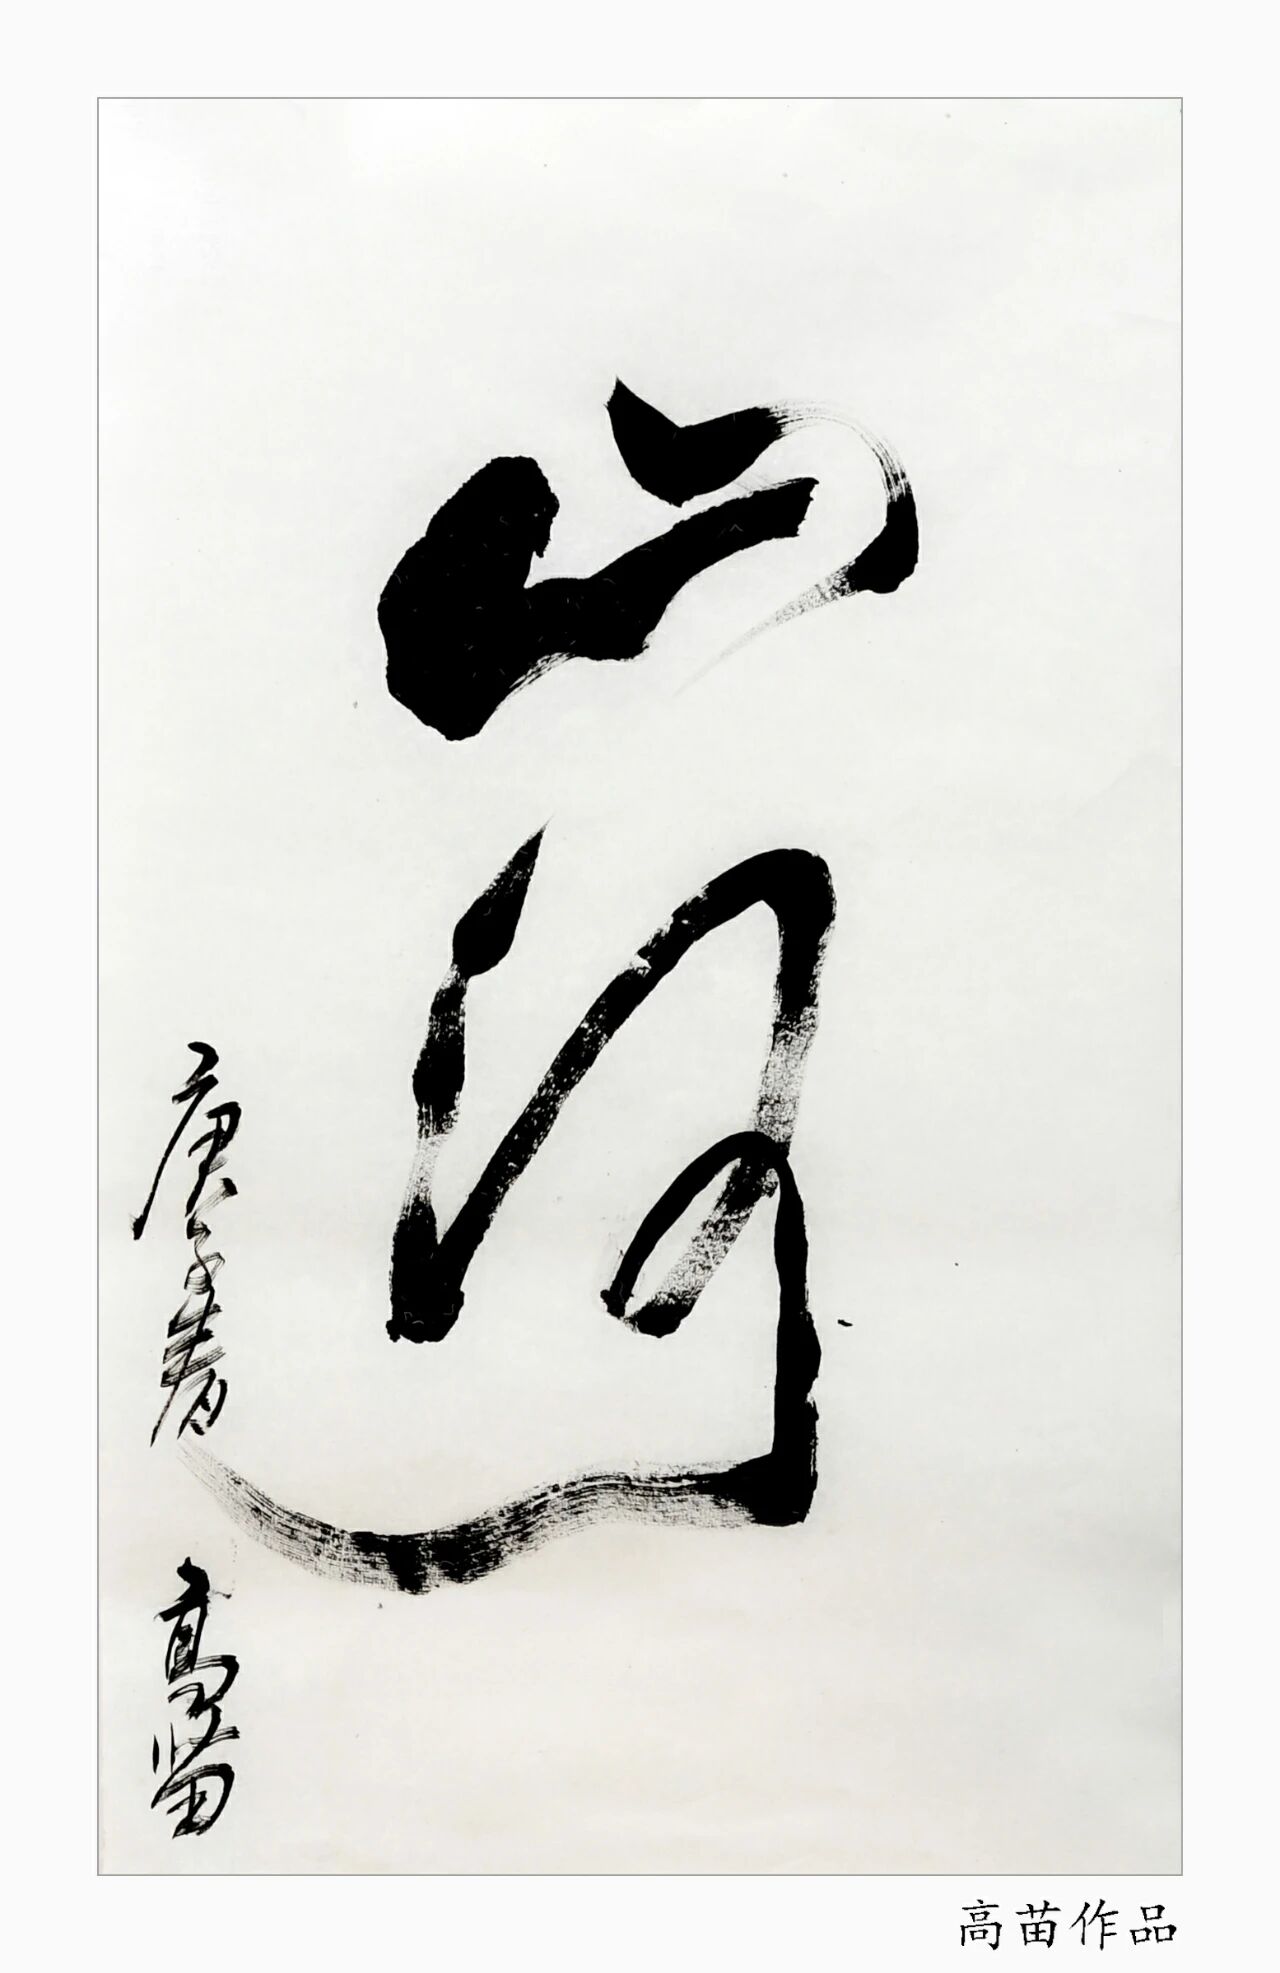 山河
庚子春 高苗
高苗作品